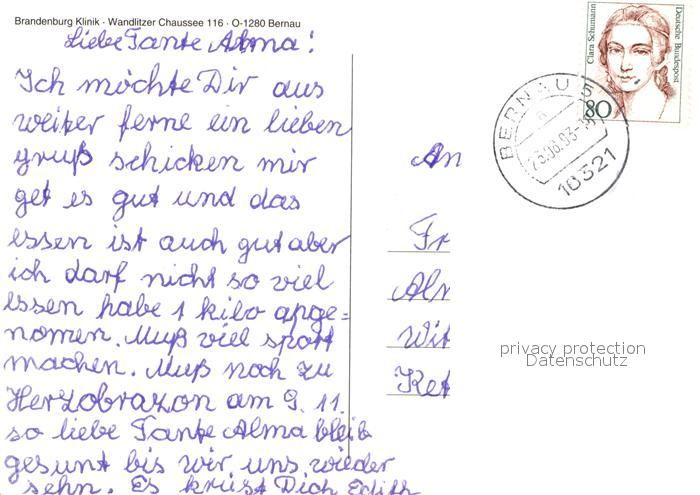 Brandenburg Klinik · Wandlitzer Chaussee 116 · O-1280 Bernau
Liebe Tante Alma!
Ich möchte Dir aus
weiter ferne ein lieben
gruß schicken mir
get es gut und das
essen ist auch gut aber
ich darf nicht so viel
essen habe 1 kilo apge=
nomen. Muß viel sport
machen. Muß noch zu
Herzobrazon am 9. 11.
so liebe Tante Alma bleib
gesunt bis wir uns wieder
sehn. Es krüst Dich Edith
An
Fr
Alm
Wit
Ket
Clara Schumann
Deutsche Bundespost
80
BERNAU 5
a
16321
privacy protection
Datenschutz